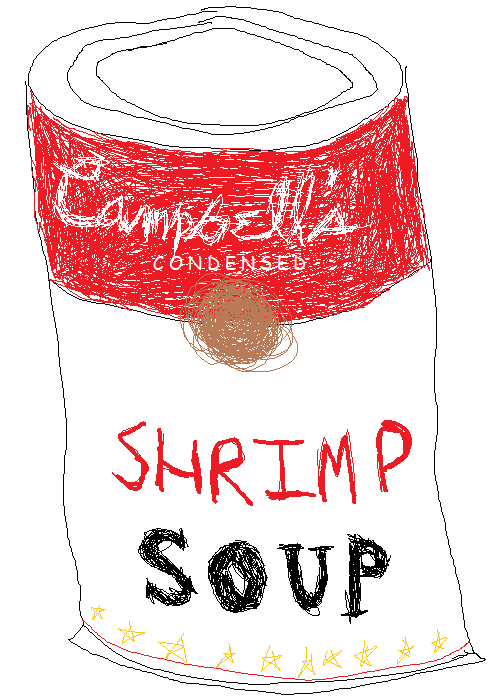 Campbell's
CONDENSED
SHRIMP
SOUP